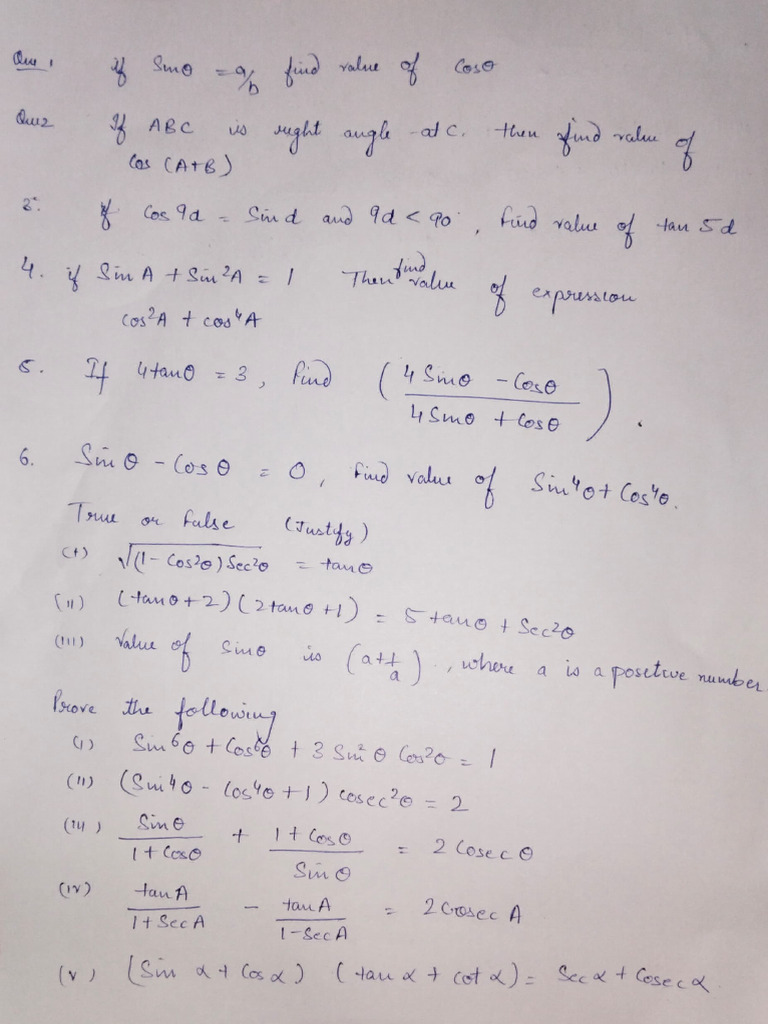 Que 1 if Sinθ = a/b find value of Cosθ
Que2 If ABC is right angle at C. then find value of
Cos (A+B)
3. if Cos 9α = Sin α and 9α < 90°, find value of tan 5α
4. if Sin A + Sin²A = 1 Then find value of expression
cos²A + cos⁴A
5. If 4tanθ = 3, find ( (4 Sinθ - Cosθ) / (4 Sinθ + Cosθ) ).
6. Sin θ - Cos θ = 0, find value of Sin⁴θ + Cos⁴θ.
True or false (Justify)
(i) √(1 - Cos²θ) Sec²θ = tanθ
(ii) (tanθ + 2) (2tanθ + 1) = 5 tanθ + Sec²θ
(iii) Value of Sinθ is (a + 1/a), where a is a positive number.
Prove the following
(i) Sin⁶θ + Cos⁶θ + 3 Sin²θ Cos²θ = 1
(ii) (Sin⁴θ - Cos⁴θ + 1) cosec²θ = 2
(iii) Sinθ / (1 + Cosθ) + (1 + Cosθ) / Sinθ = 2 Cosec θ
(iv) tanA / (1 + Sec A) - tanA / (1 - Sec A) = 2 Cosec A
(v) (Sin α + Cos α) (tan α + cot α) = Sec α + Cosec α.